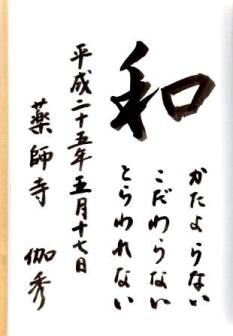 和
かたよらない
こだわらない
とらわれない
平成二十五年五月十七日
薬師寺 伽秀